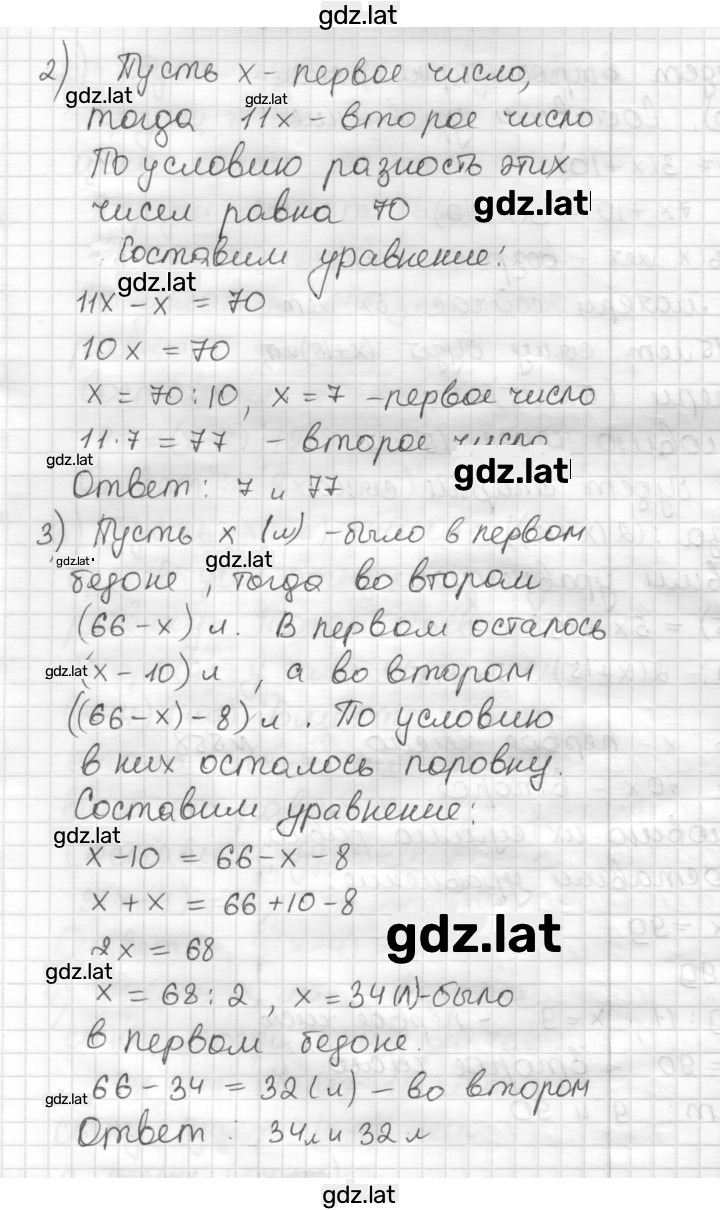 gdz.lat
2) Пусть x - первое число,
gdz.lat gdz.lat
тогда 11x - второе число
По условию разность этих
чисел равна 70 gdz.lat
Составим уравнение:
gdz.lat
11x - x = 70
10x = 70
x = 70 : 10, x = 7 - первое число
11 · 7 = 77 - второе число
gdz.lat gdz.lat
Ответ: 7 и 77
3) Пусть x (л) - было в первом
gdz.lat gdz.lat
бедоне, тогда во втором
(66 - x) л. В первом осталось
gdz.lat (x - 10) л, а во втором
((66 - x) - 8) л. По условию
в них осталось поровну.
Составим уравнение:
gdz.lat
x - 10 = 66 - x - 8
x + x = 66 + 10 - 8
gdz.lat
2x = 68
gdz.lat
x = 68 : 2, x = 34 (л) - было
в первом бедоне.
gdz.lat 66 - 34 = 32 (л) - во втором
Ответ: 34 л и 32 л
gdz.lat